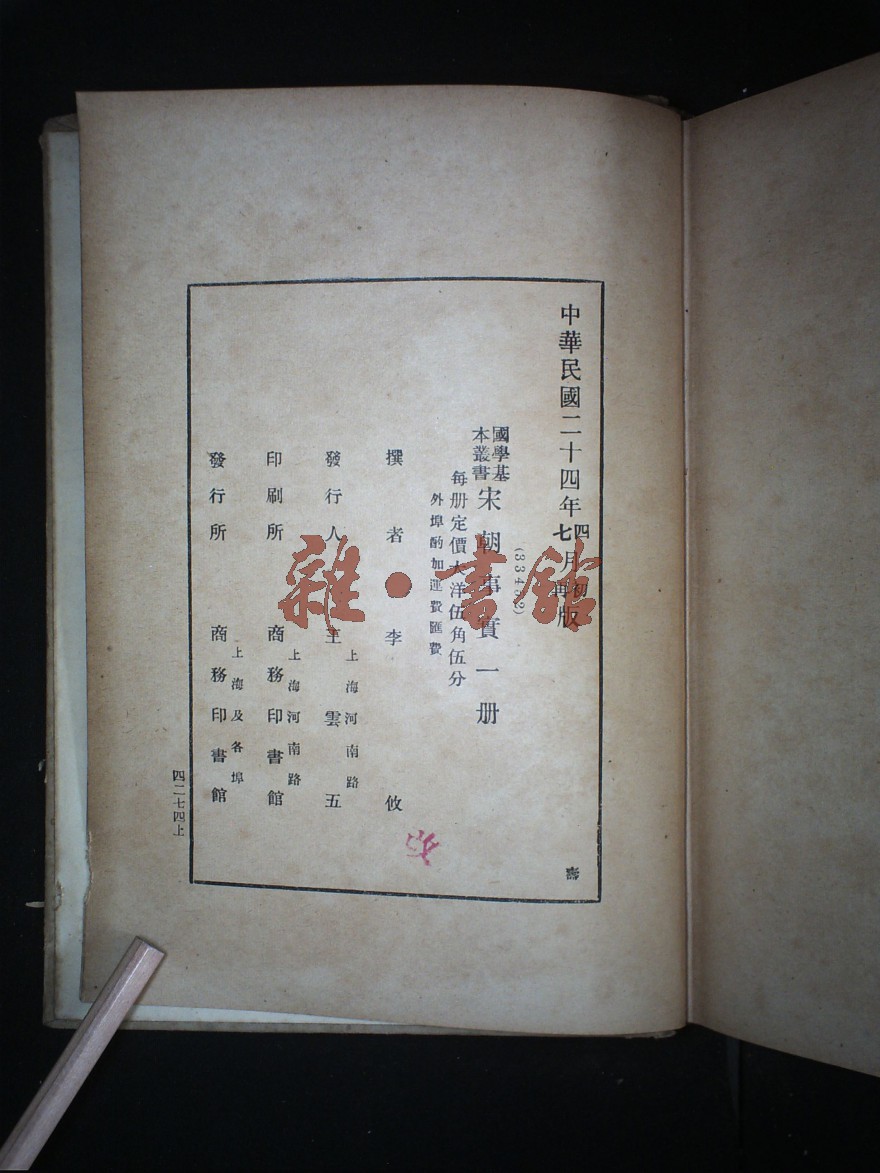 中華民國二十四年四月初版
七月再版
國學基
本叢書
宋朝事實一册
(33452)
每册定價大洋伍角伍分
外埠酌加運費匯費
撰者 李攸
發行人 王雲五
上海河南路
印刷所 商務印書館
上海河南路
發行所 商務印書館
上海及各埠
四二七四上
壽
雜·書館